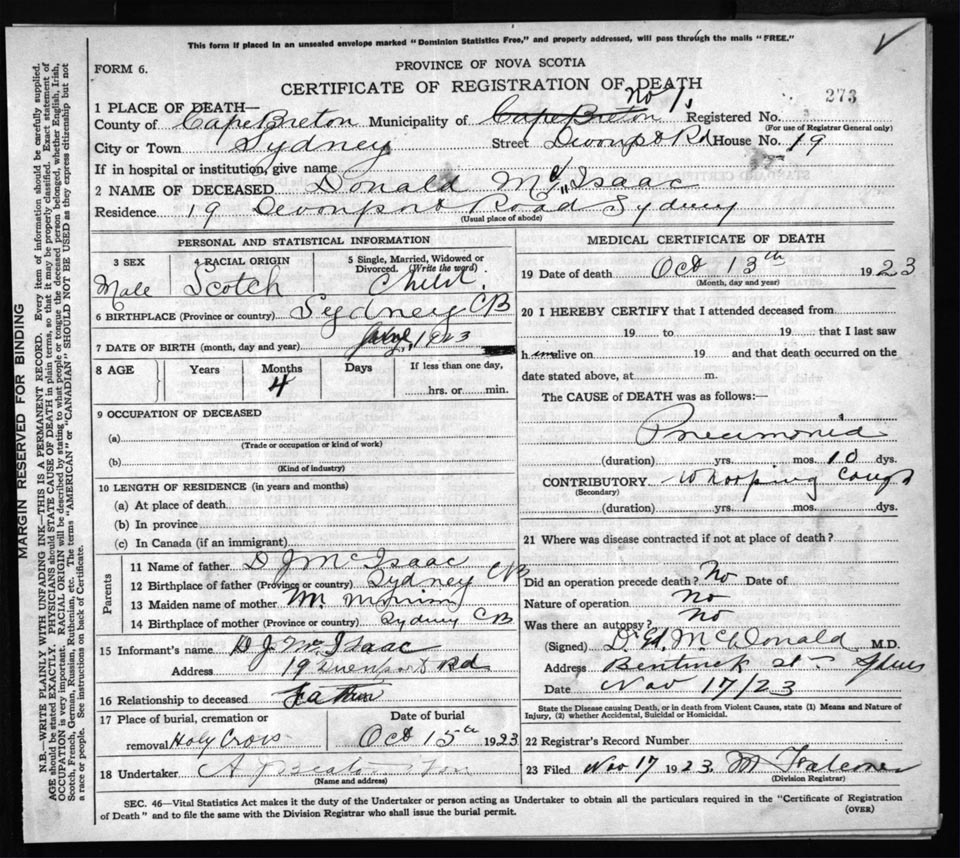 This form if placed in an unsealed envelope marked "Dominion Statistics Free," and properly addressed, will pass through the mails "FREE."
FORM 6.
PROVINCE OF NOVA SCOTIA
CERTIFICATE OF REGISTRATION OF DEATH
273
1 PLACE OF DEATH—
No 1.
County of Cape Breton Municipality of Cape Breton Registered No.
(For use of Registrar General only)
City or Town Sydney Street Devonport Rd House No. 19
If in hospital or institution, give name
2 NAME OF DECEASED Donald McIsaac
Residence 19 Devonport Road Sydney
(Usual place of abode)
PERSONAL AND STATISTICAL INFORMATION
3 SEX
Male
4 RACIAL ORIGIN
Scotch
5 Single, Married, Widowed or Divorced. (Write the word)
Child.
6 BIRTHPLACE (Province or country) Sydney CB
7 DATE OF BIRTH (month, day and year) 1923
8 AGE Years Months Days If less than one day,
4 hrs. or min.
9 OCCUPATION OF DECEASED
(a)
(Trade or occupation or kind of work)
(b)
(Kind of industry)
10 LENGTH OF RESIDENCE (in years and months)
(a) At place of death
(b) In province
(c) In Canada (if an immigrant)
Parents
11 Name of father D J McIsaac
12 Birthplace of father (Province or country) Sydney CB
13 Maiden name of mother M.
14 Birthplace of mother (Province or country) Sydney CB
15 Informant's name D J McIsaac
Address 19 Devenport Rd
16 Relationship to deceased Father
17 Place of burial, cremation or removal Holy Cross
Date of burial
Oct 15th 1923
18 Undertaker A
(Name and address)
MEDICAL CERTIFICATE OF DEATH
19 Date of death Oct 13th 1923
(Month, day and year)
20 I HEREBY CERTIFY that I attended deceased from
19 to 19 that I last saw
h im alive on 19 and that death occurred on the
date stated above, at m.
The CAUSE of DEATH was as follows:—
Pneumonia
(duration) yrs. mos. 10 dys.
CONTRIBUTORY Whooping Cough
(Secondary)
(duration) yrs. mos. dys.
21 Where was disease contracted if not at place of death?
Did an operation precede death? No Date of
Nature of operation No
Was there an autopsy? No
(Signed) D. McDonald M.D.
Address Bentinck St
Date Nov 17/23
State the Disease causing Death, or in death from Violent Causes, state (1) Means and Nature of
Injury, (2) whether Accidental, Suicidal or Homicidal.
22 Registrar's Record Number
23 Filed Nov 17 1923. M Falconer
(Division Registrar)
SEC. 46—Vital Statistics Act makes it the duty of the Undertaker or person acting as Undertaker to obtain all the particulars required in the "Certificate of Registration
of Death" and to file the same with the Division Registrar who shall issue the burial permit.
(OVER)
MARGIN RESERVED FOR BINDING
N.B.—WRITE PLAINLY WITH UNFADING INK—THIS IS A PERMANENT RECORD. Every item of information should be carefully supplied.
AGE should be stated EXACTLY. PHYSICIANS should STATE CAUSE OF DEATH in plain terms, so that it may be properly classified. Exact statement of
OCCUPATION is very important. RACIAL ORIGIN will be described by stating to what people or tongue the deceased person belonged, whether English, Irish,
Scotch, French, German, Russian, Ruthenian, etc. The terms "AMERICAN" or "CANADIAN" SHOULD NOT BE USED as they express citizenship but not
a race or people. See instructions on back of Certificate.